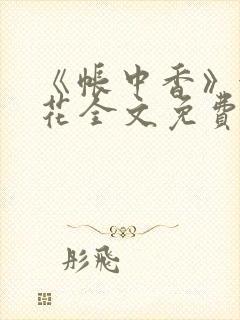 《帳中香》
花全文免費
彤飛